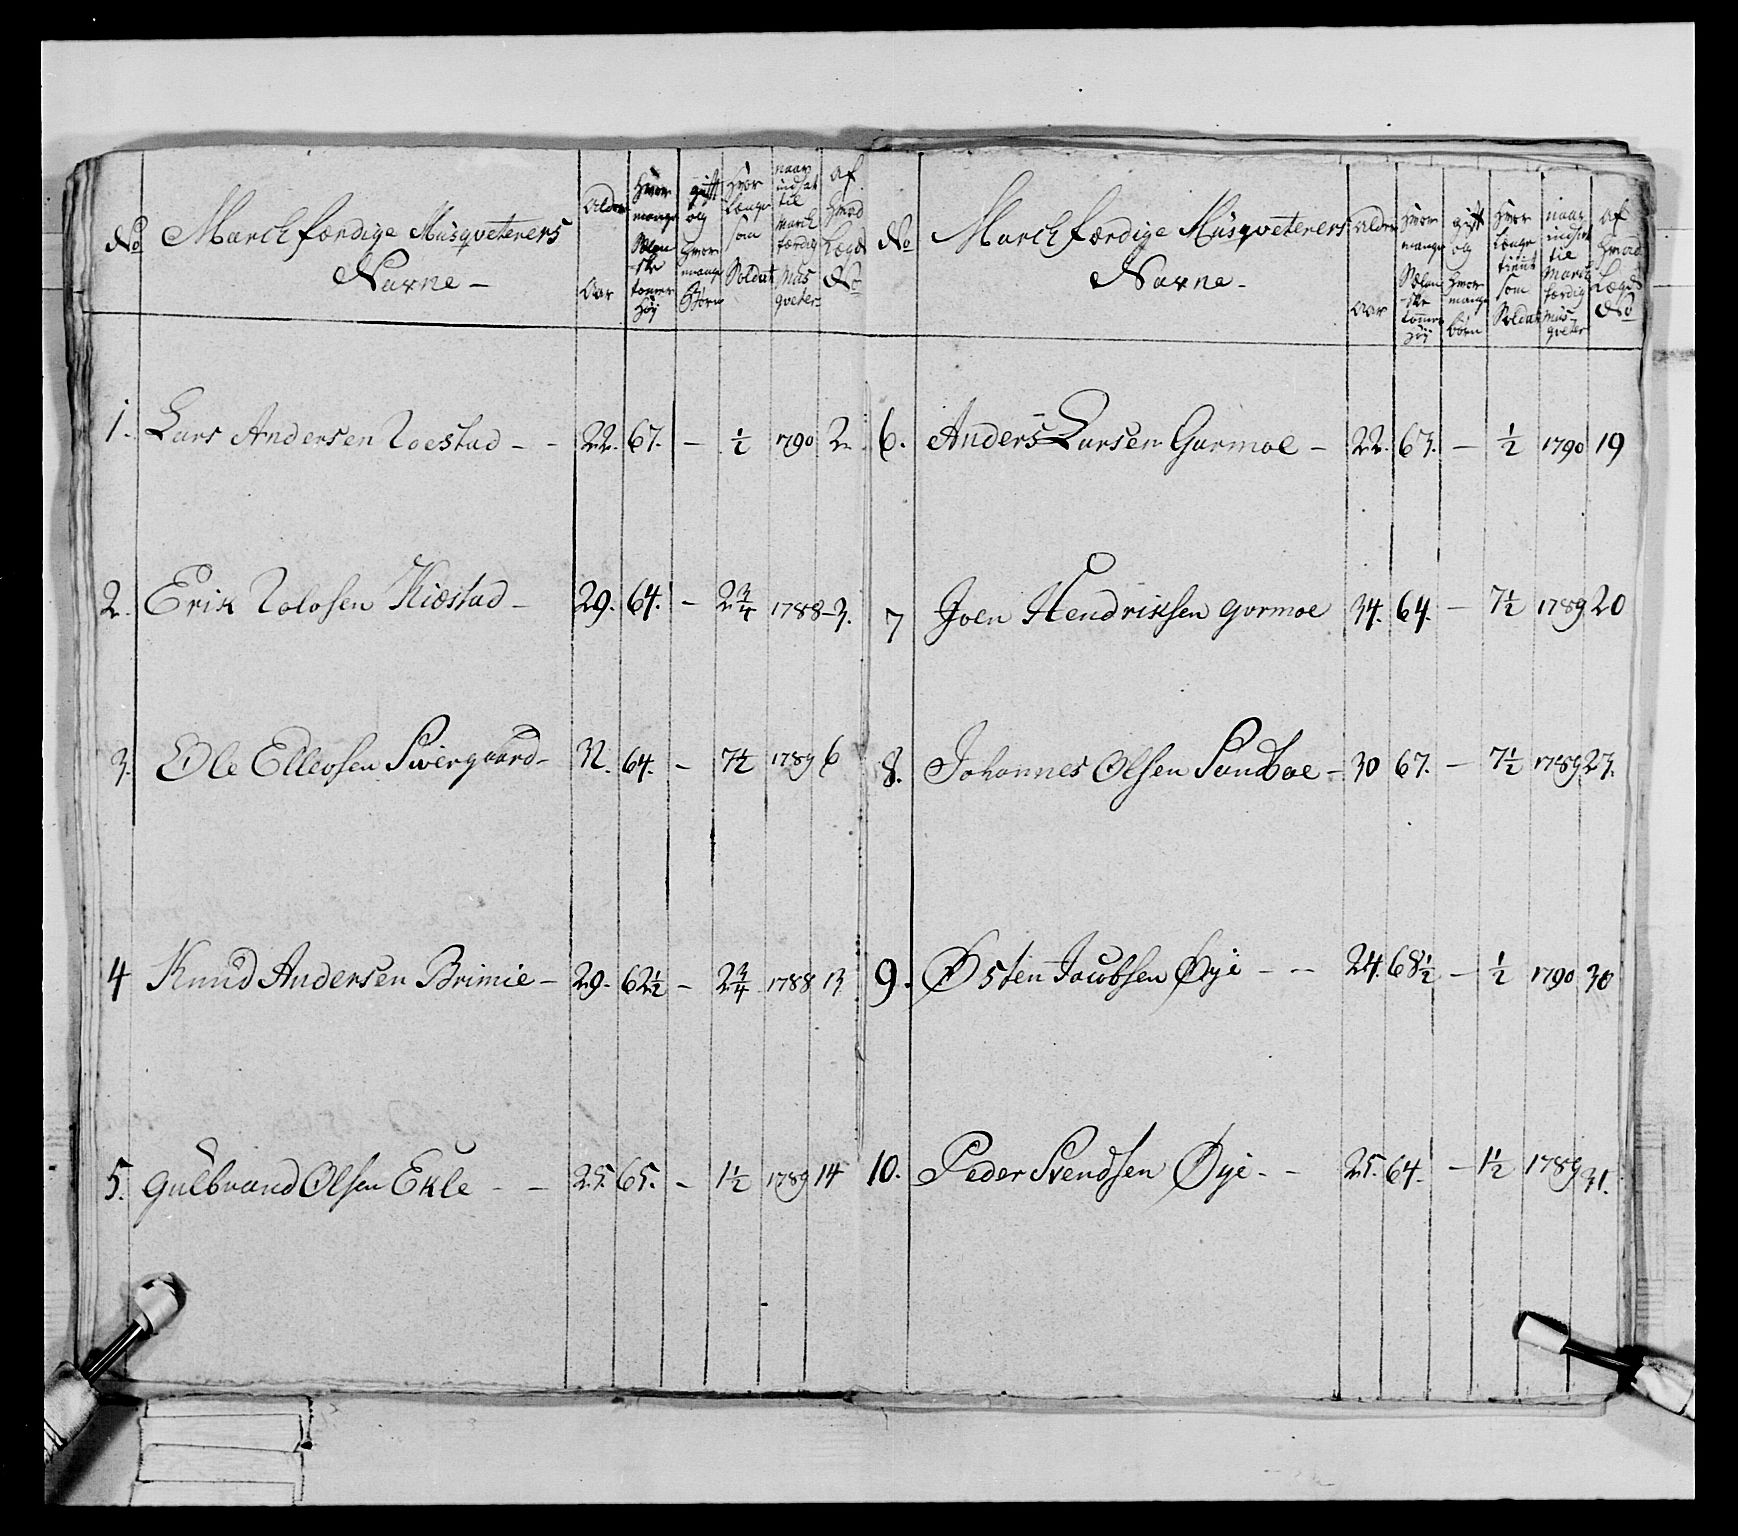 No
March færdige Musqveterers
Navne -
Alder
Aar
Hvor
mange
Sælan
ske
tomer
høy
gift
og
hvor
mange
Børn
Hvor
Længe
som
Soldat
naar
indsat
til
March
færdig
Mus
qveter
af
hvad
Lægd
No
1. Lars Andersen Loestad - - 22. 67. - ½ 1790 2.
2. Erik Olsen Kiæstad - 29. 64. - 2¾ 1788 - 3.
3. Ole Ellevsen Sivergaard - 32. 64. - 7½ 1789 6
4 Knud Andersen Brimie - 29. 62½ - 2¾ 1788 13
5. Gulbrand Olsen Ekle - - 25. 65. - 1½ 1789 14
No
March færdige Musqveterers
Navne -
Alder
Aar
Hvor
mange
Sælan
ske
tommer
høy
gift
og
hvor
mange
børn
Hvor
Længe
tient
som
Soldat
naar
indsat
til
March
færdig
Mus
qveter
af
hvad
Lægd
No
6. Anders Larsen Garmoe - 22. 63. - ½ 1790 19
7 Joen Hendriksen garmoe 34. 64. - 7½ 1789 20
8. Johannes Olsen Sandboe - 30 67. - 7½ 1789 23.
9. Østen Jacobsen Øye - - 24. 68½ - ½ 1790 30
10. Peder Svendsen Øye - - 25. 64. - 1½ 1789 31.